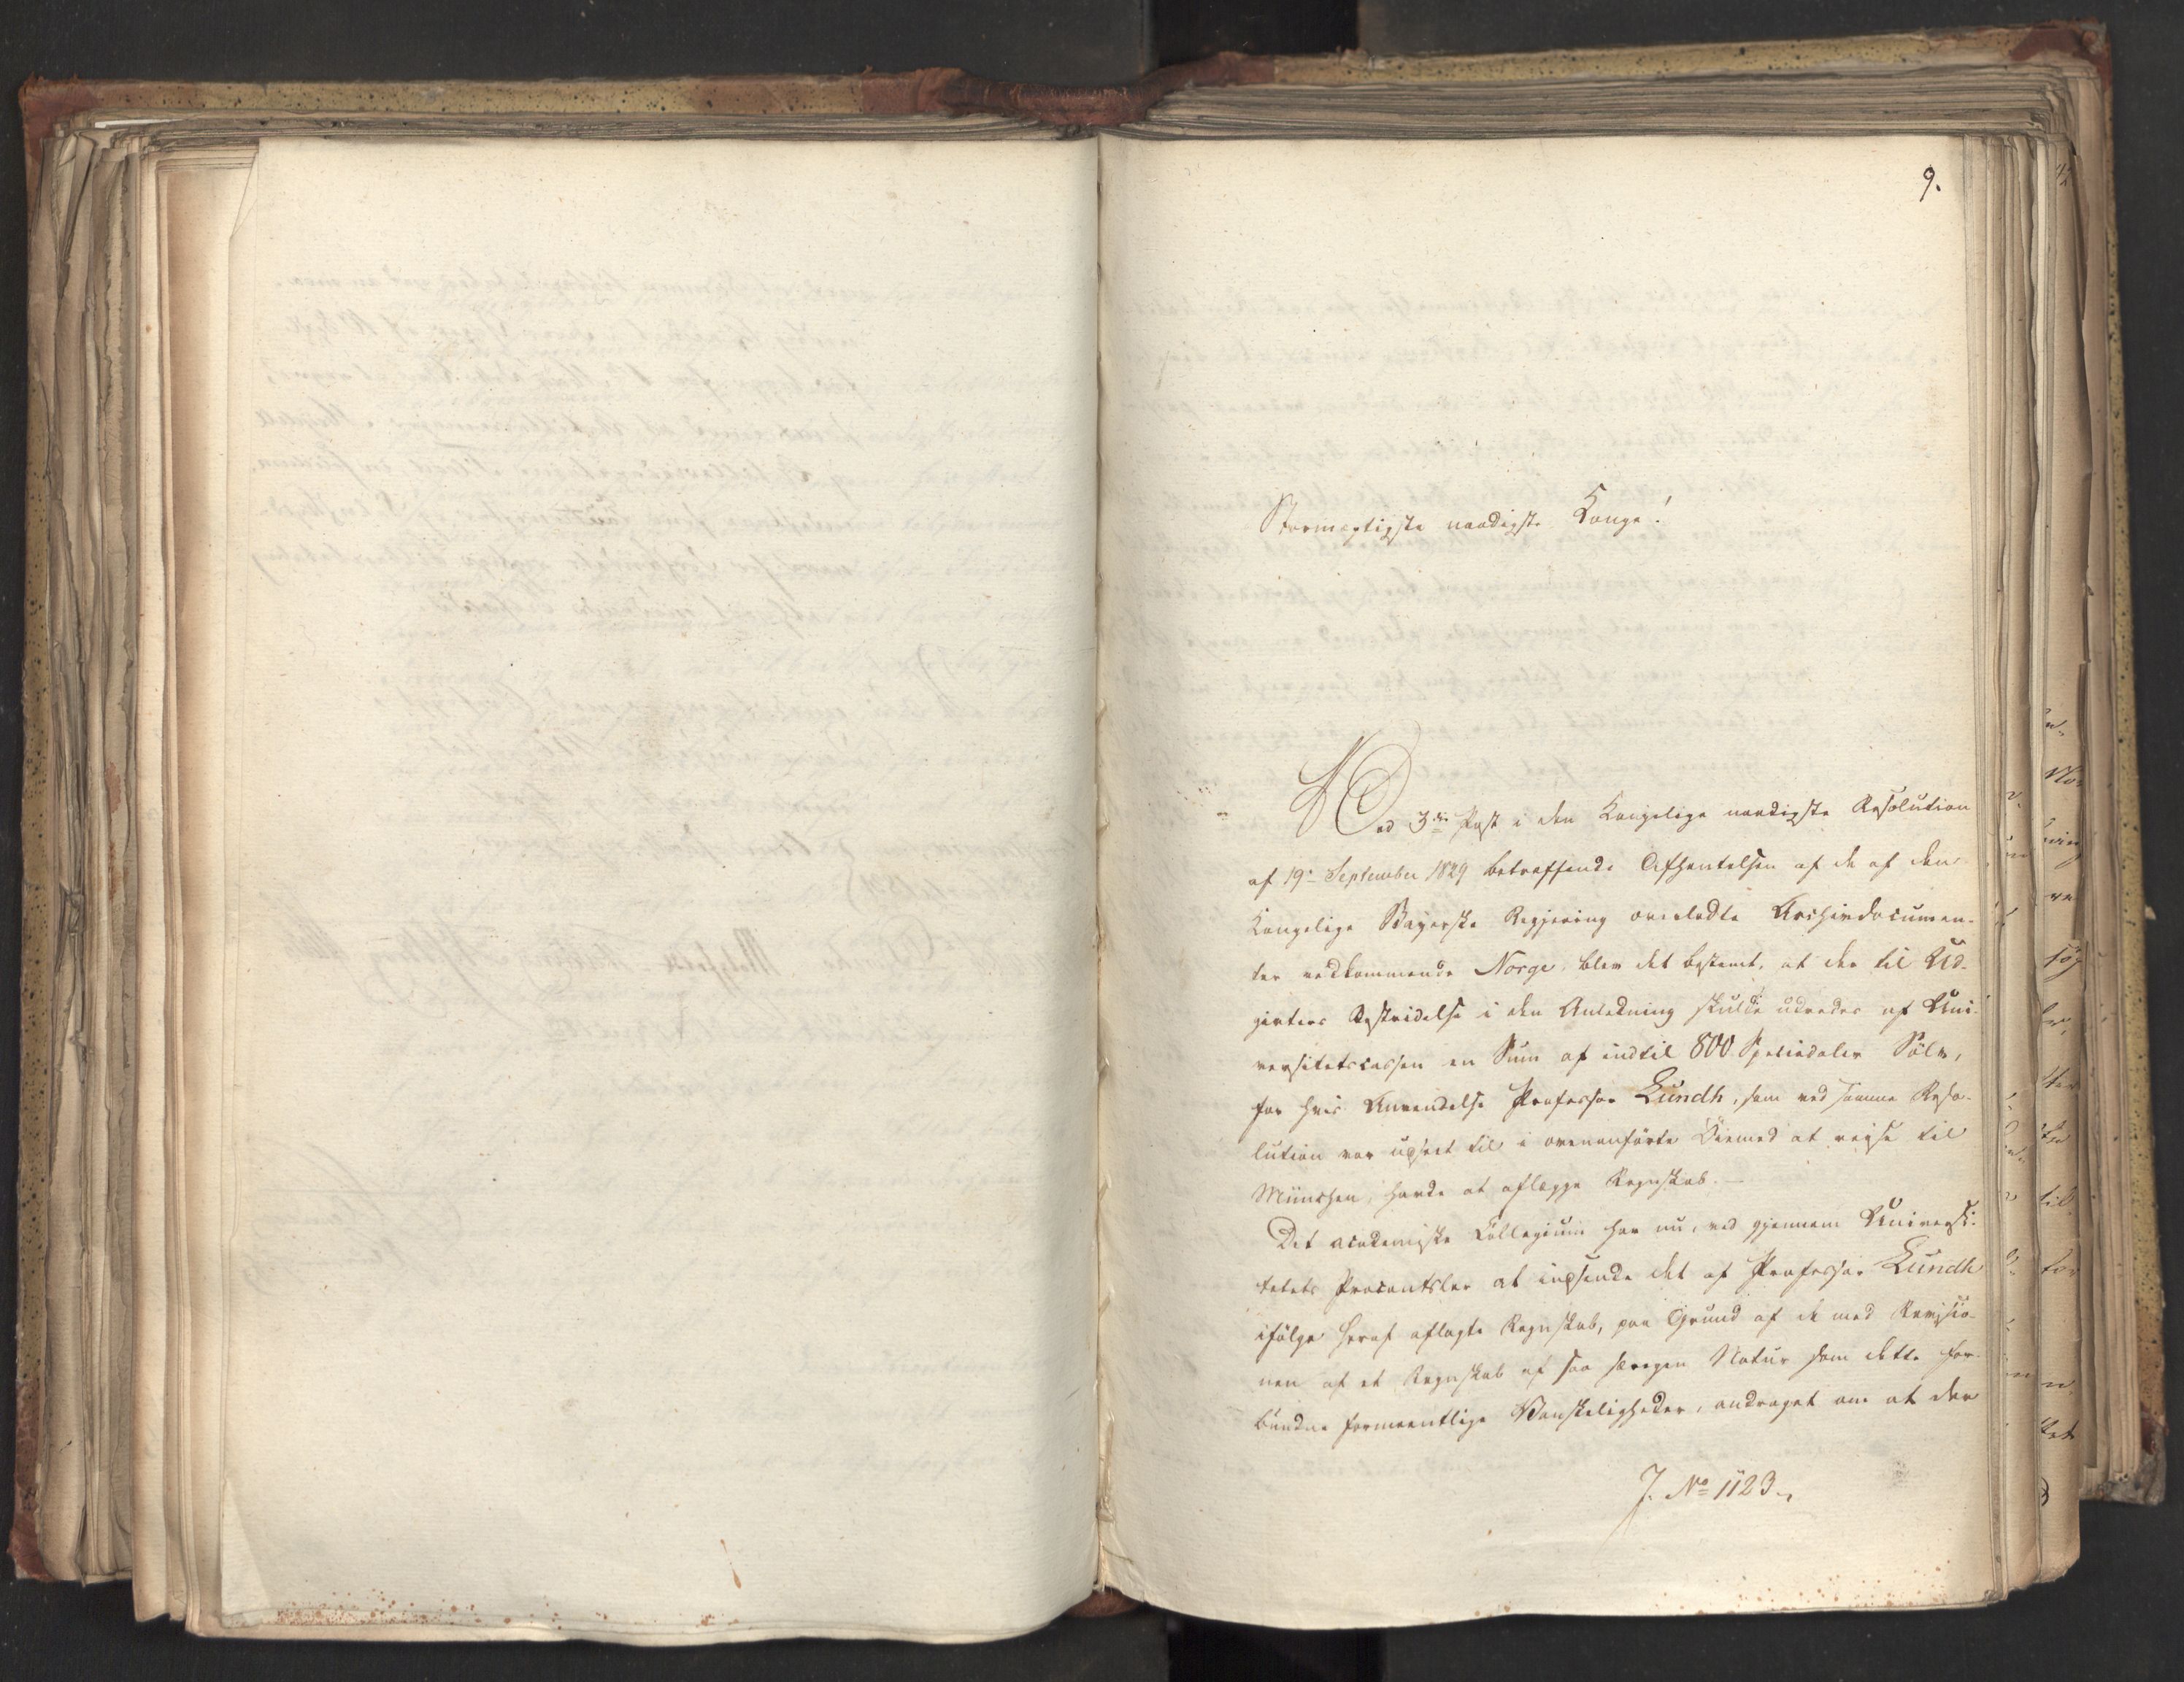 9.
Stormægtigste naadigste Konge!
Ved 3die Post i den Kongelige naadigste Resolution
af 19de September 1829 betræffende Afhentelsen af de af den
Kongelige Bayerske Regjering overladte Archivdocumen-
ter vedkommende Norge, blev det bestemt, at der til Ud-
givters Bestridelse i den Anledning skulde udredes af Uni-
versitetscassen en Sum af indtil 800 Speciedaler Sölv,
for hvis Anvendelse Professor Lundh, som ved samme Reso-
lution var udseet til i ovenanförte Öiemed at reise til
München, havde at aflægge Regnskab. —
Det academiske Collegium har nu, ved gjennem Universi-
tetets Procantsler at indsende det af Professor Lundh
ifölge heraf aflagte Regnskab, paa Grund af de med Revisio-
nen af et Regnskab af saa særegen Natur som dette for-
bundne formeentlige Vanskeligheder, andraget om at der
J. No 1123.